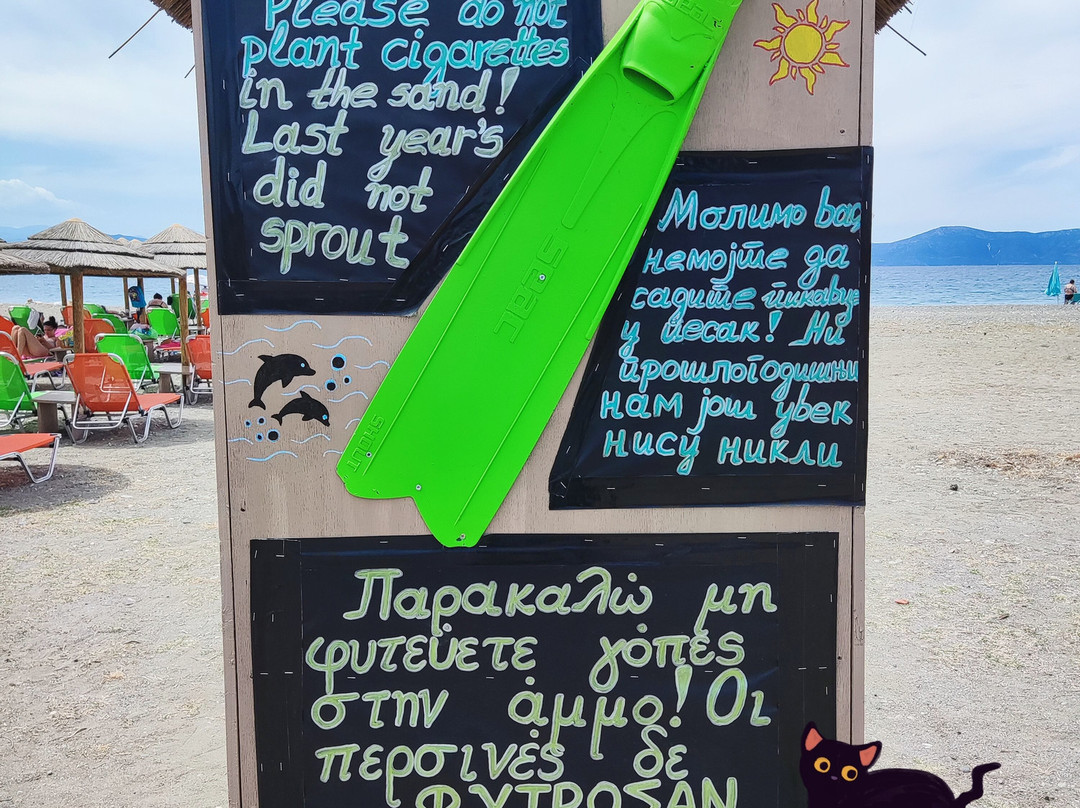 Please do not
plant cigarettes
in the sand!
Last year's
did not
sprout
seac
seac
SHOUT
Молимо вас,
немојте да
садите пикавце
у песак! Ни
прошлогодишњи
нам још увек
нису никли
Παρακαλώ μη
φυτεύετε γόπες
στην άμμο! Οι
περσινές δε
ΦΥΤΡΟΣΑΝ